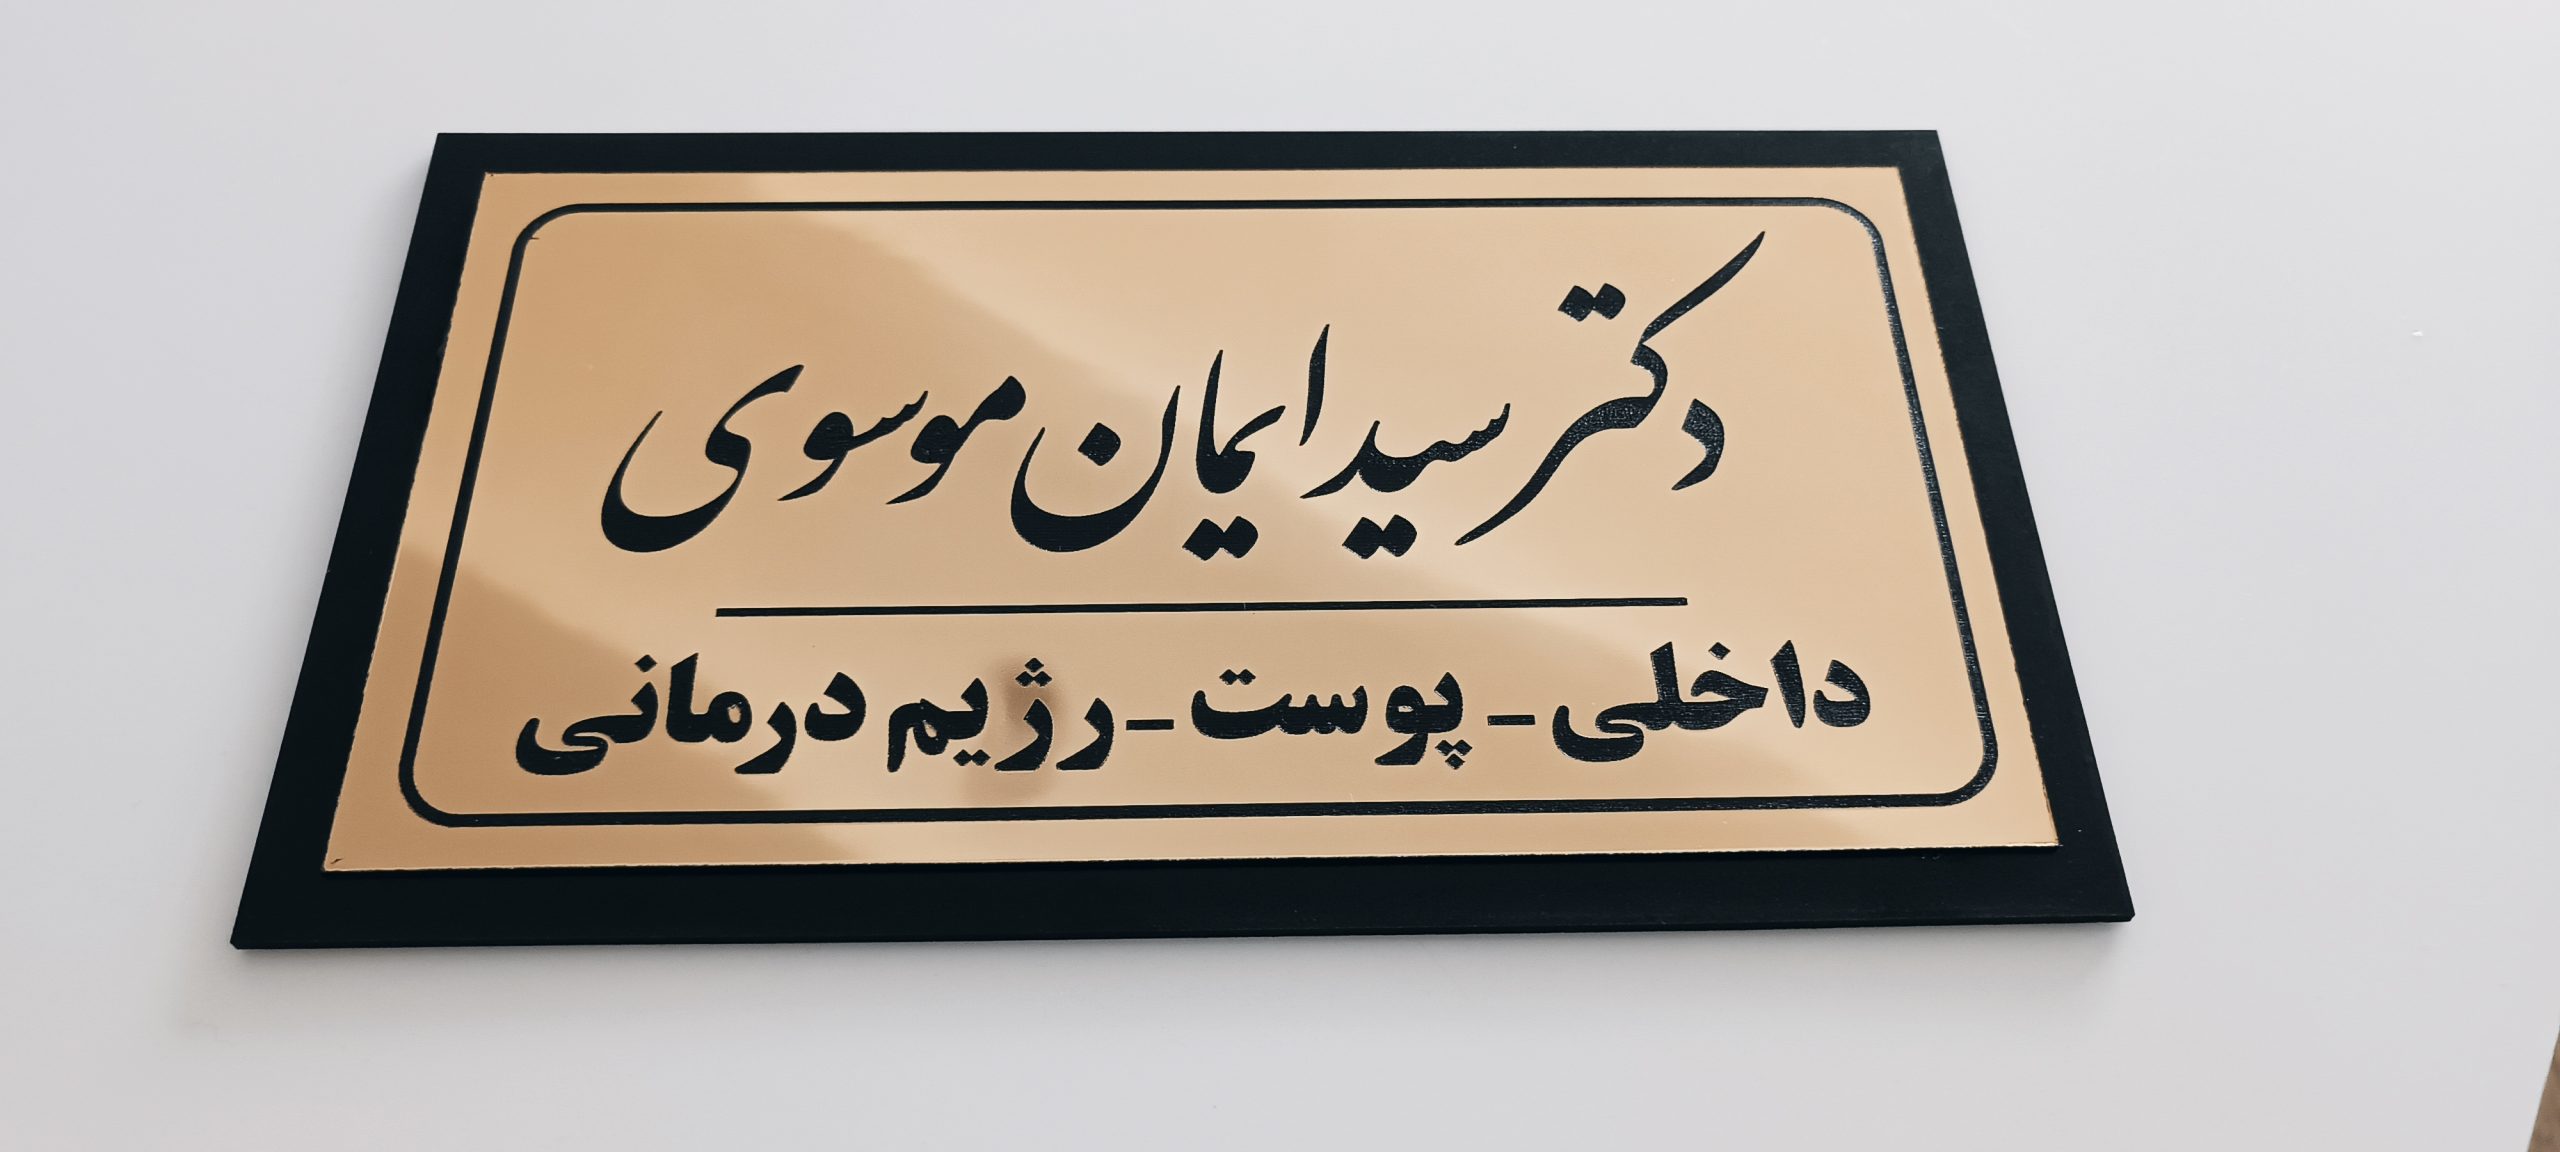 دکتر سید ایمان موسوی
داخلی - پوست - رژیم درمانی